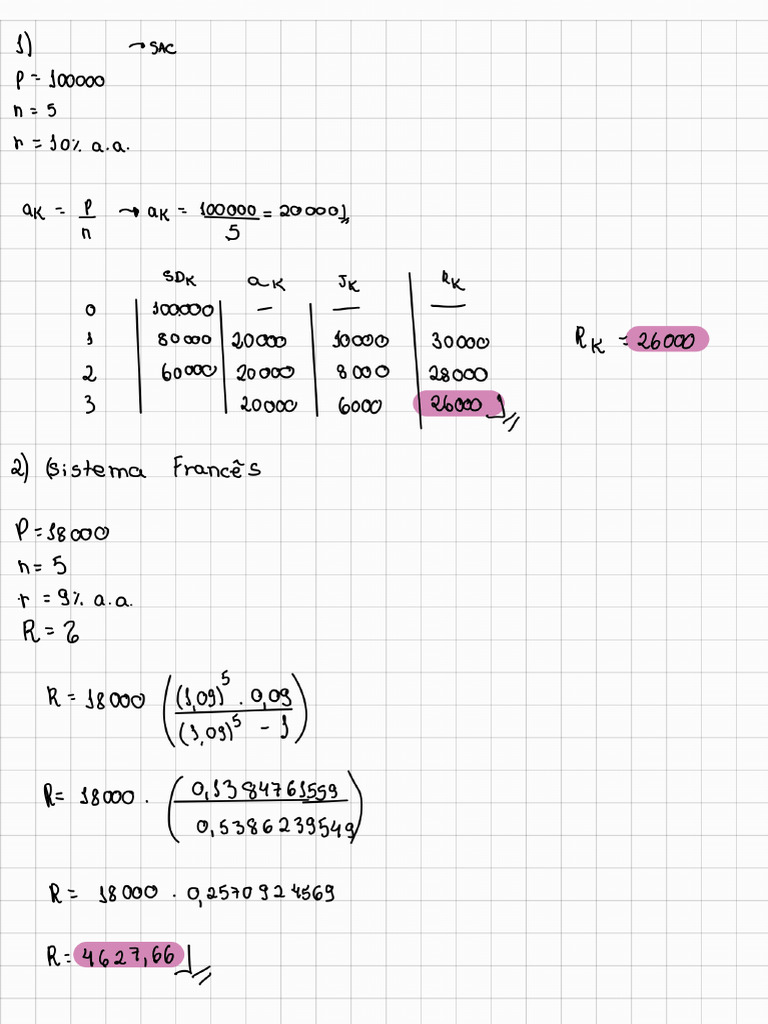 1) → SAC
P = 100000
n = 5
r = 10% a.a.
aK = P/n → aK = 100000/5 = 20000
SDK aK JK RK
0 100000 — — —
1 80000 20000 10000 30000 RK = 26000
2 60000 20000 8000 28000
3 20000 6000 26000
2) (Sistema Francês
P = 18000
n = 5
r = 9% a.a.
R = ?
R = 18000 ((1,09)^5 . 0,09 / (1,09)^5 - 1)
R = 18000 . (0,1384761559 / 0,5386239549)
R = 18000 . 0,2570924569
R = 4627,66